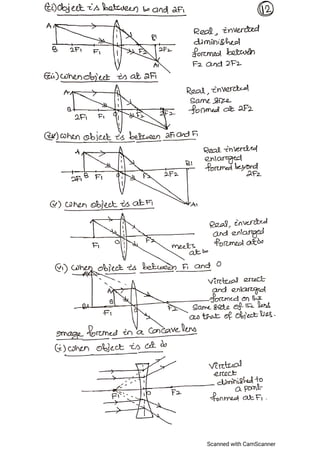 (ii) object is between ∞ and 2F1
12
A
B 2F1 F1 O F2 2F2
B1
A1
Real, inverted
diminished
formed between
F2 and 2F2
(iii) when object is at 2F1
A
B
2F1 F1 O F2 2F2
A1
Real, inverted
Same size
formed at 2F2
(iv) when object is between 2F1 and F1
A
2F1 B F1 O F2 2F2 B1
A1
Real inverted
enlarged
formed beyond
2F2
(v) when object is at F1
F1 O F2
meets
at ∞
Real, inverted
and enlarged
formed at ∞
(vi) when object is between F1 and O
A1
A
B1 F1 B O F2
Virtual erect
and enlarged
formed on the
Same side of the lens
as that of object lies.
Image formed in a concave lens
(i) when object is at ∞
F1 O F2
Virtual
erect
diminished to
a point
formed at F1.
Scanned with CamScanner